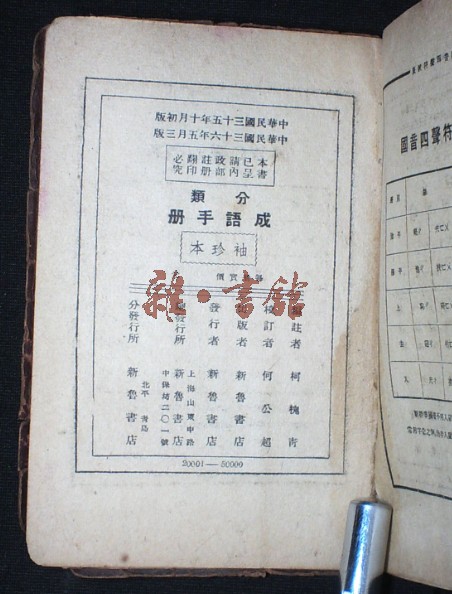 中華民國三十五年十月初版
中華民國三十六年五月三版
本書已呈請內政部註册翻印必究
分類
成語手册
袖珍本
實價
註者 柯槐青
校訂者 何公超
出版者 新魯書店
發行者 新魯書店
發行所 新魯書店
上海山東中路
中保坊二〇一號
分發行所 新魯書店
北平 青島
20001—30000
雜·書館
符聲四音圖